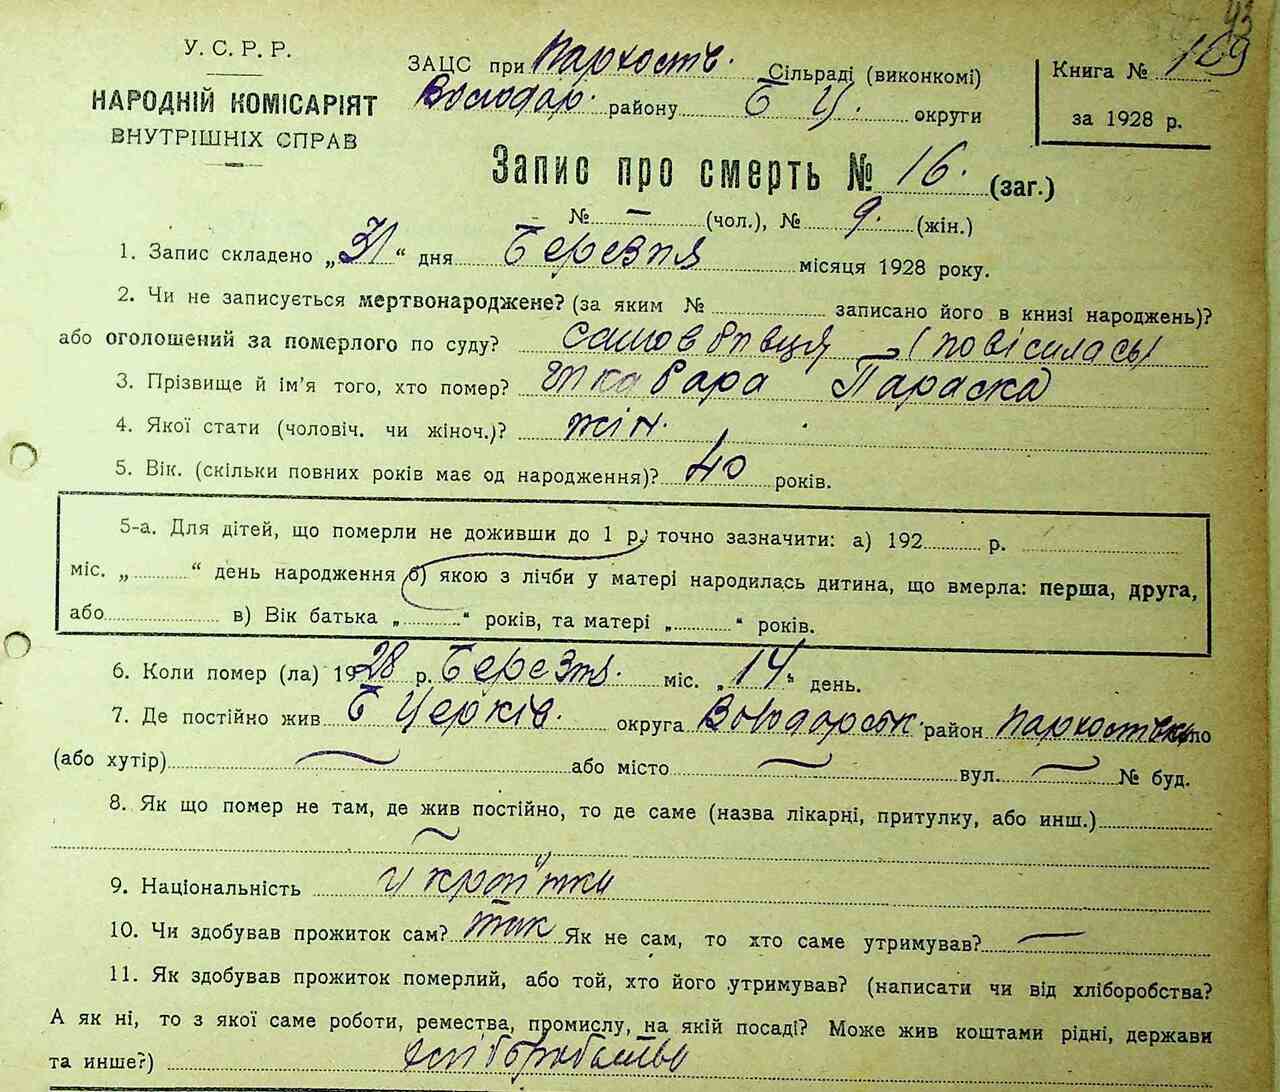 43
У. С. Р. Р.
НАРОДНІЙ КОМІСАРІЯТ
ВНУТРІШНІХ СПРАВ
ЗАЦС при Пархостів. Сільраді (виконкомі)
Володар. району Б Ц. округи
Книга № 109
за 1928 р.
Запис про смерть № 16. (заг.)
№ — (чол.), № 9. (жін.)
1. Запис складено „31“ дня Березня місяця 1928 року.
2. Чи не записується мертвонароджене? (за яким № записано його в книзі народжень)?
або оголошений за померлого по суду? (повісилась)
3. Прізвище й ім'я того, хто помер? Параска
4. Якої стати (чоловіч. чи жіноч.)? жін.
5. Вік. (скільки повних років має од народження)? 40 років.
5-а. Для дітей, що померли не доживши до 1 р. точно зазначити: а) 192 р.
міс. „ “ день народження б) якою з лічби у матері народилась дитина, що вмерла: перша, друга,
або в) Вік батька „ “ років, та матері „ “ років.
6. Коли помер (ла) 1928 р. Березня. міс. „14“ день.
7. Де постійно жив Б Церків. округа Володарськ. район село
(або хутір) або місто вул. № буд.
8. Як що помер не там, де жив постійно, то де саме (назва лікарні, притулку, або инш.)
9. Національність українка
10. Чи здобував прожиток сам? так Як не сам, то хто саме утримував? —
11. Як здобував прожиток померлий, або той, хто його утримував? (написати чи від хліборобства?
А як ні, то з якої саме роботи, ремества, промислу, на якій посаді? Може жив коштами рідні, держави
та инше?) хліборобство